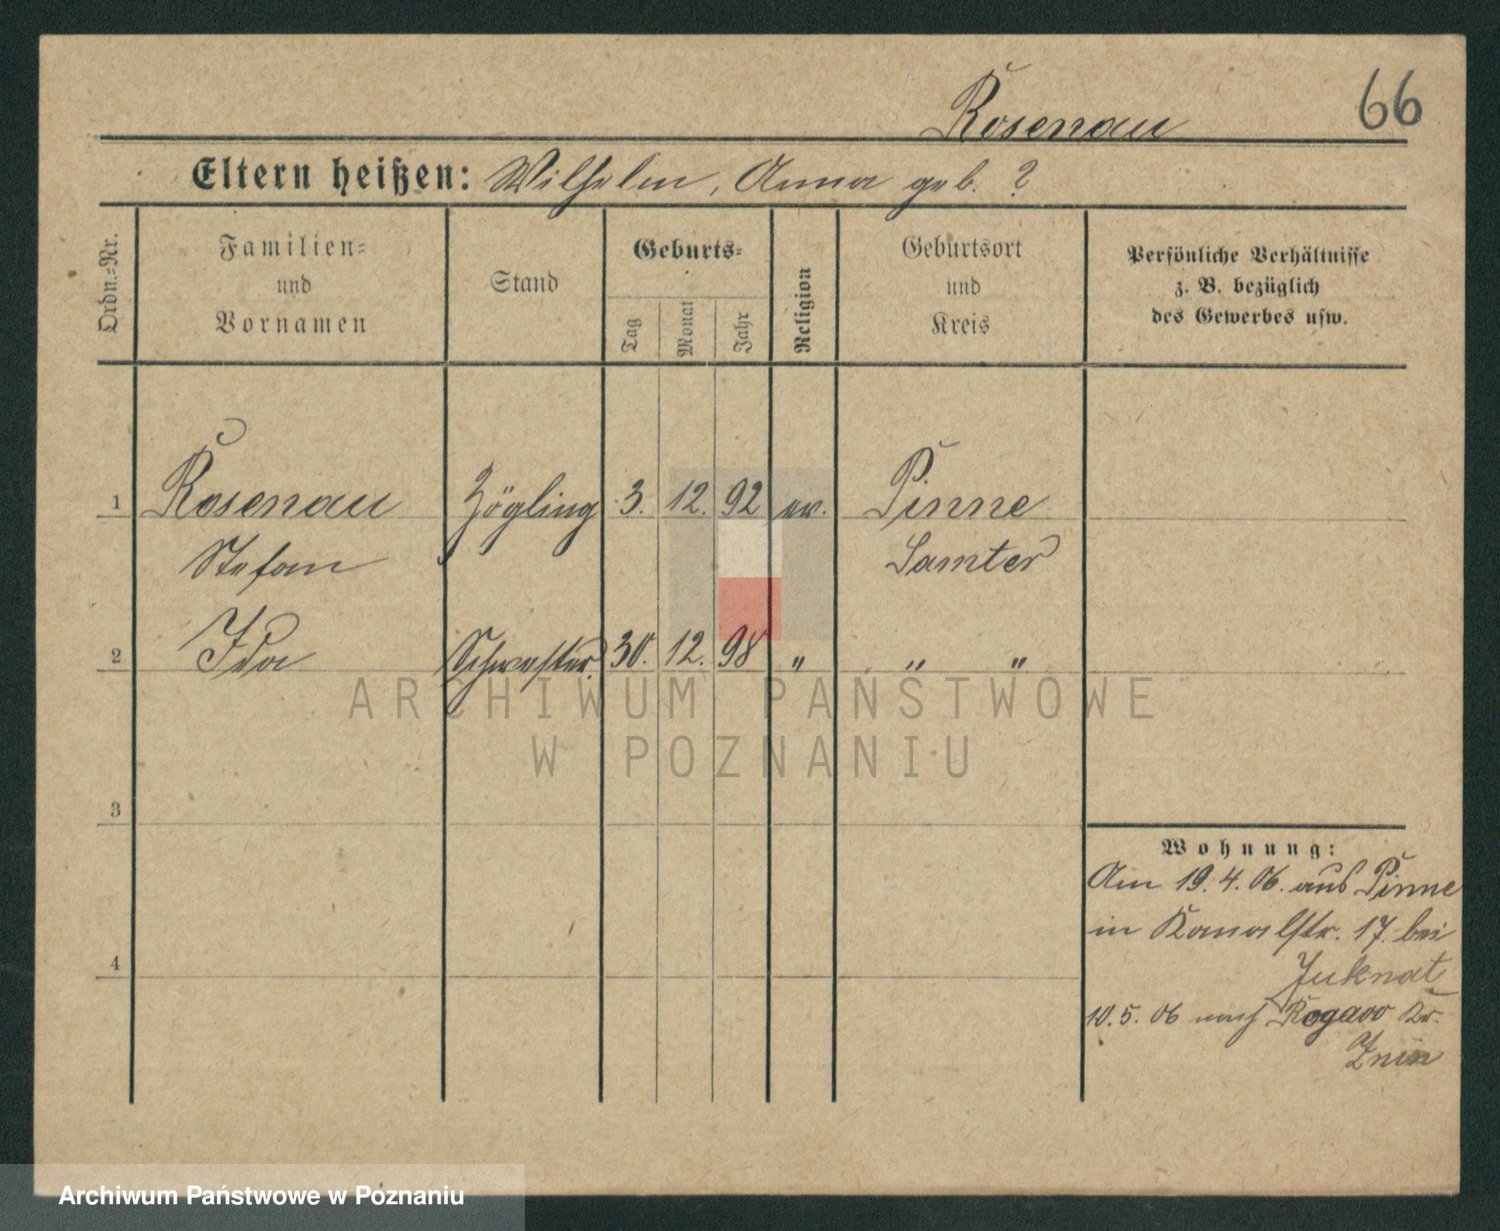 66
Rosenau
Eltern heißen: Wilhelm, Anna geb. ?
Ordn.=Nr.
Familien=
und
Vornamen
Stand
Geburts=
Tag
Monat
Jahr
Religion
Geburtsort
und
Kreis
Persönliche Verhältnisse
z. B. bezüglich
des Gewerbes usw.
1 Rosenau Zögling 3. 12. 92 ev. Pinne
Stefan Samter
2 Ida Schwester 30. 12. 98 " " "
ARCHIWUM PAŃSTWOWE
W POZNANIU
3
4
Wohnung:
Am 19.4.06. aus Pinne
in Kanalstr. 17. bei
Juknat
10.5.06 nach Rogowo Kr.
Znin
Archiwum Państwowe w Poznaniu